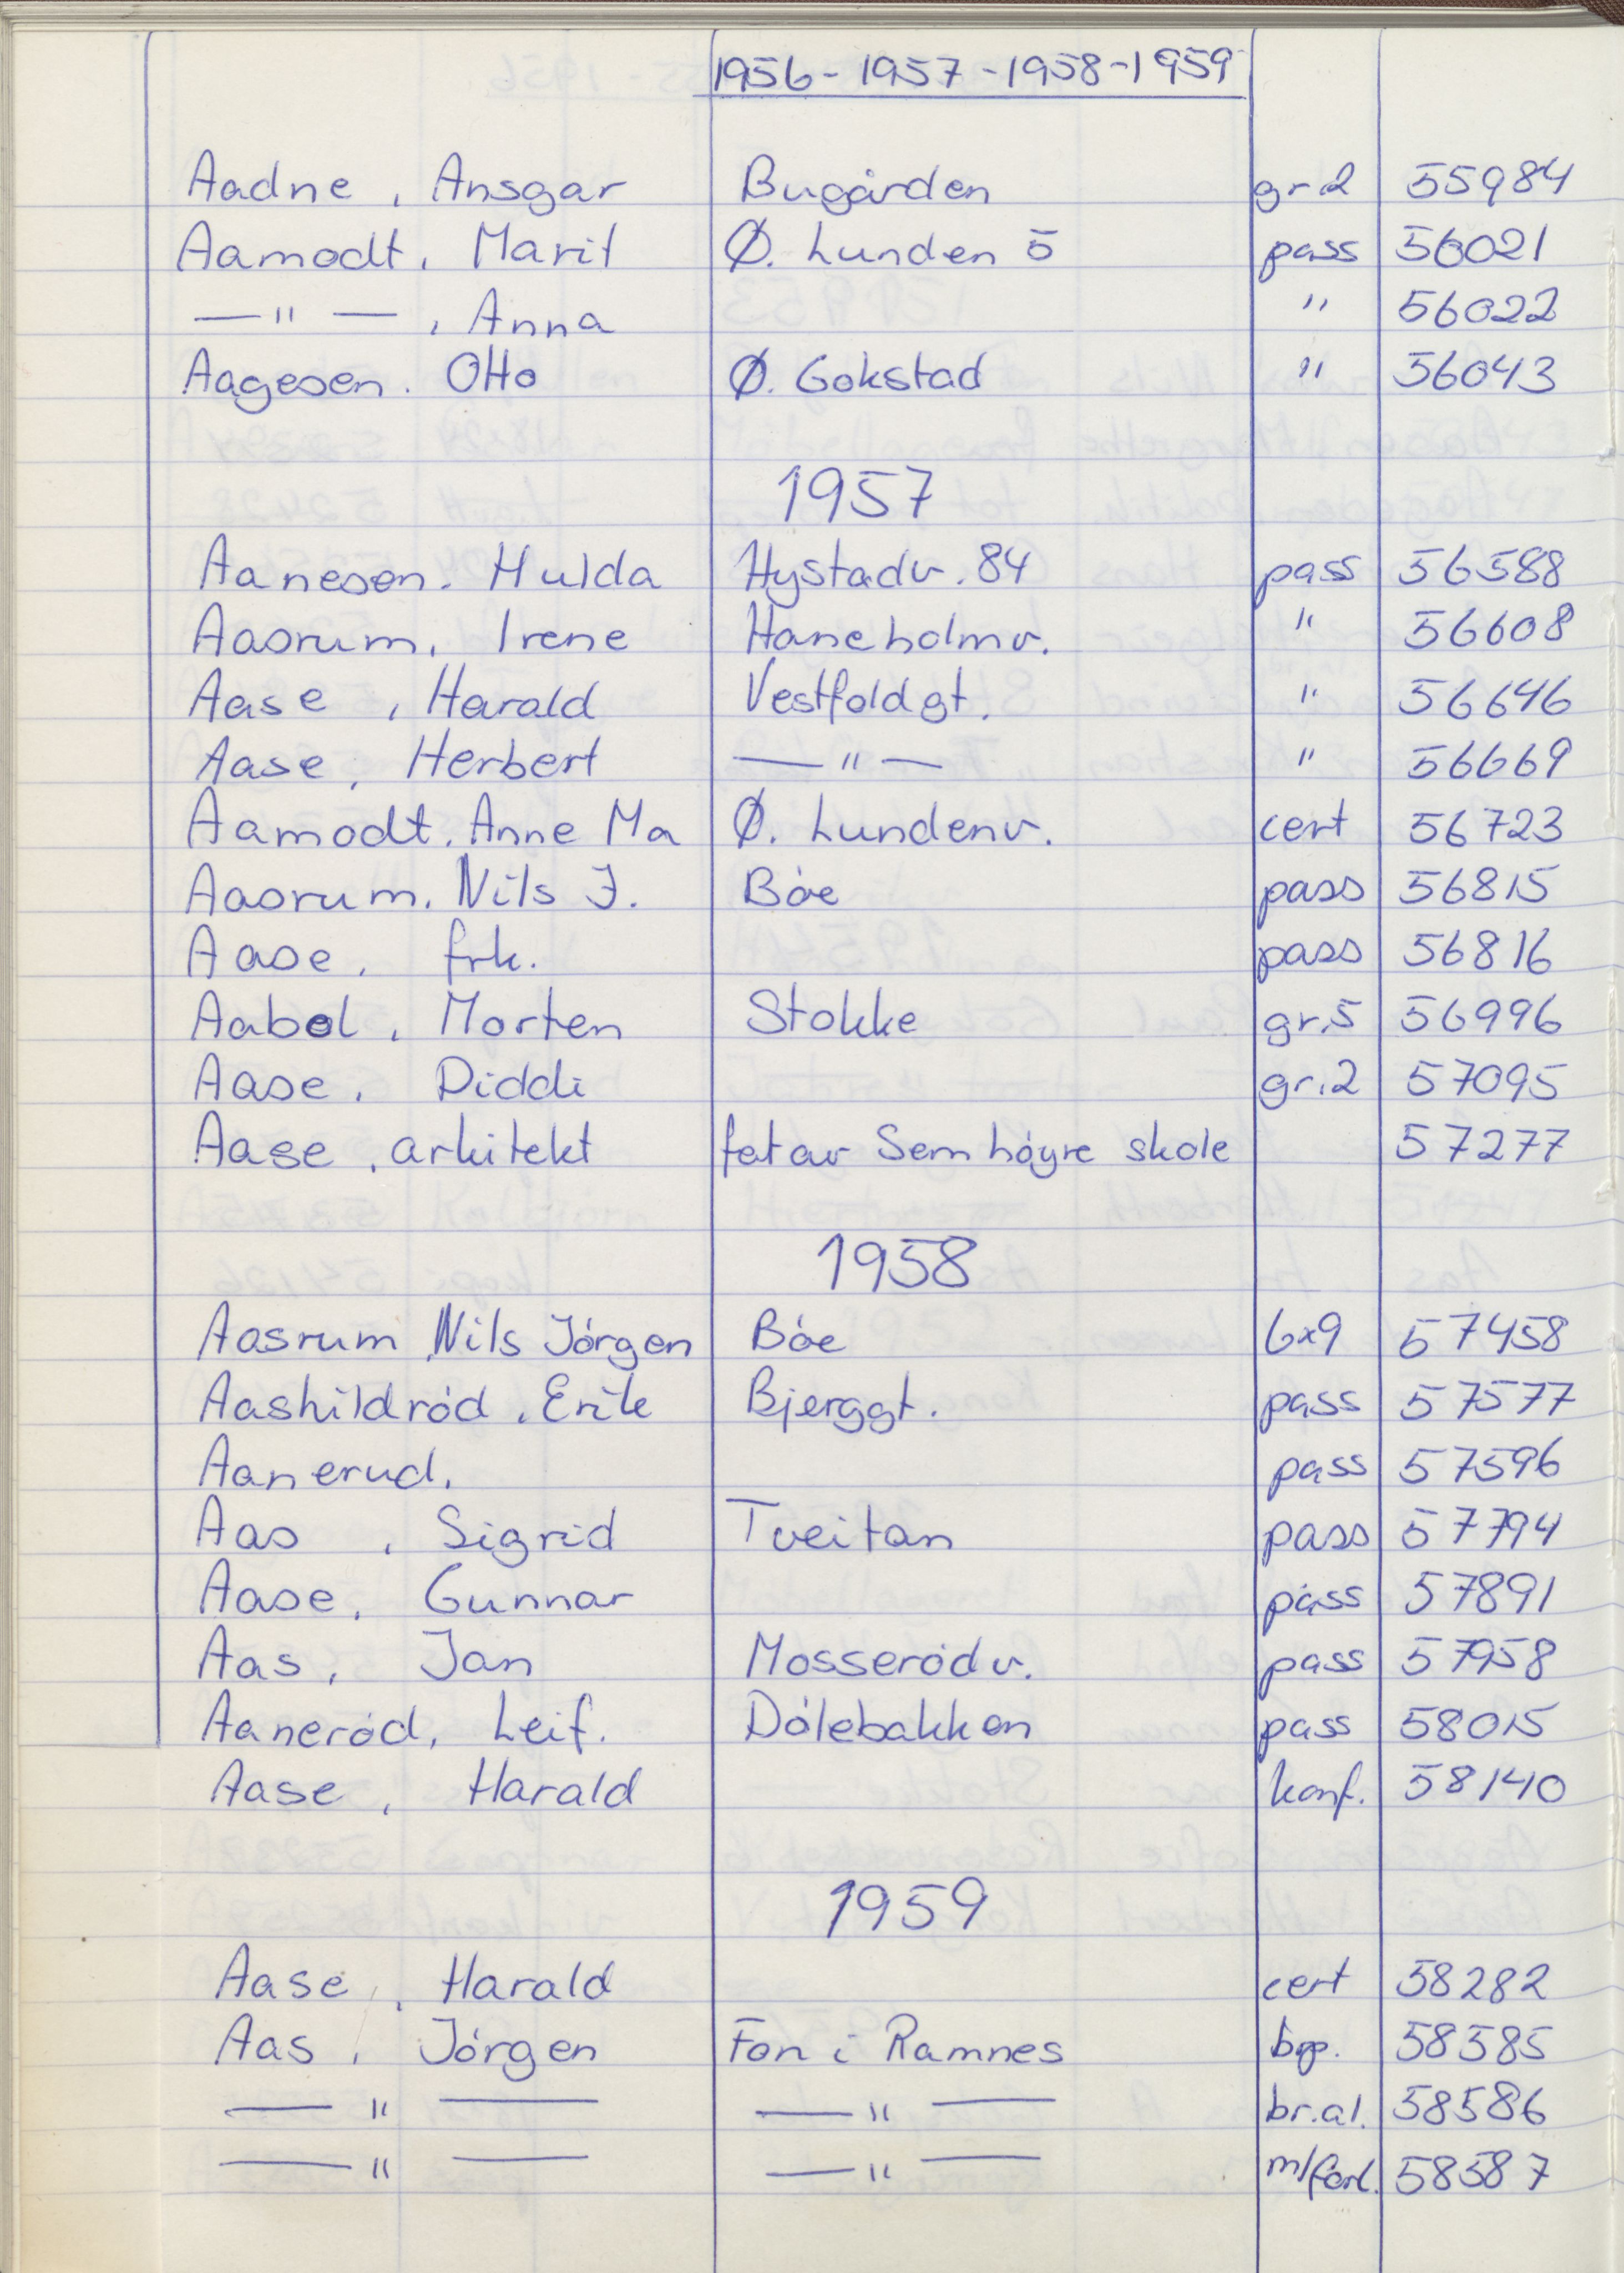 1956 - 1957 - 1958 - 1959
Aadne, Ansgar Bugården gr.2 55984
Aamodt, Marit Ø. Lunden 5 pass 56021
— " —, Anna " 56022
Aagesen. Otto Ø. Gokstad " 56043
1957
Aanesen. Hulda Hystadv. 84 pass 56588
Aasrum, Irene Haneholmv. " 56608
Aase, Harald Vestfoldgt. " 56646
Aase, Herbert — " — " 56669
Aamodt. Anne Ma Ø. Lundenv. cert 56723
Aasrum. Nils J. Bóe pass 56815
Aase, frk. pass 56816
Aabol, Morten Stokke gr.5 56996
Aase, Diddi gr.2 57095
Aase, arkitekt fot av Sem hóyre skole 57277
1958
Aasrum, Nils Jórgen Bóe 6x9 57458
Aashildród, Erik Bjerggt. pass 57577
Aanerud, pass 57596
Aas, Sigrid Tveitan pass 57794
Aase, Gunnar pass 57891
Aas, Jan Mosseródv. pass 57958
Aaneród, Leif. Dólebakken pass 58015
Aase, Harald konf. 58140
1959
Aase, Harald cert 58282
Aas, Jórgen Fon i Ramnes brp. 58585
— " — — " — br.al. 58586
— " — — " — m/forl. 58587